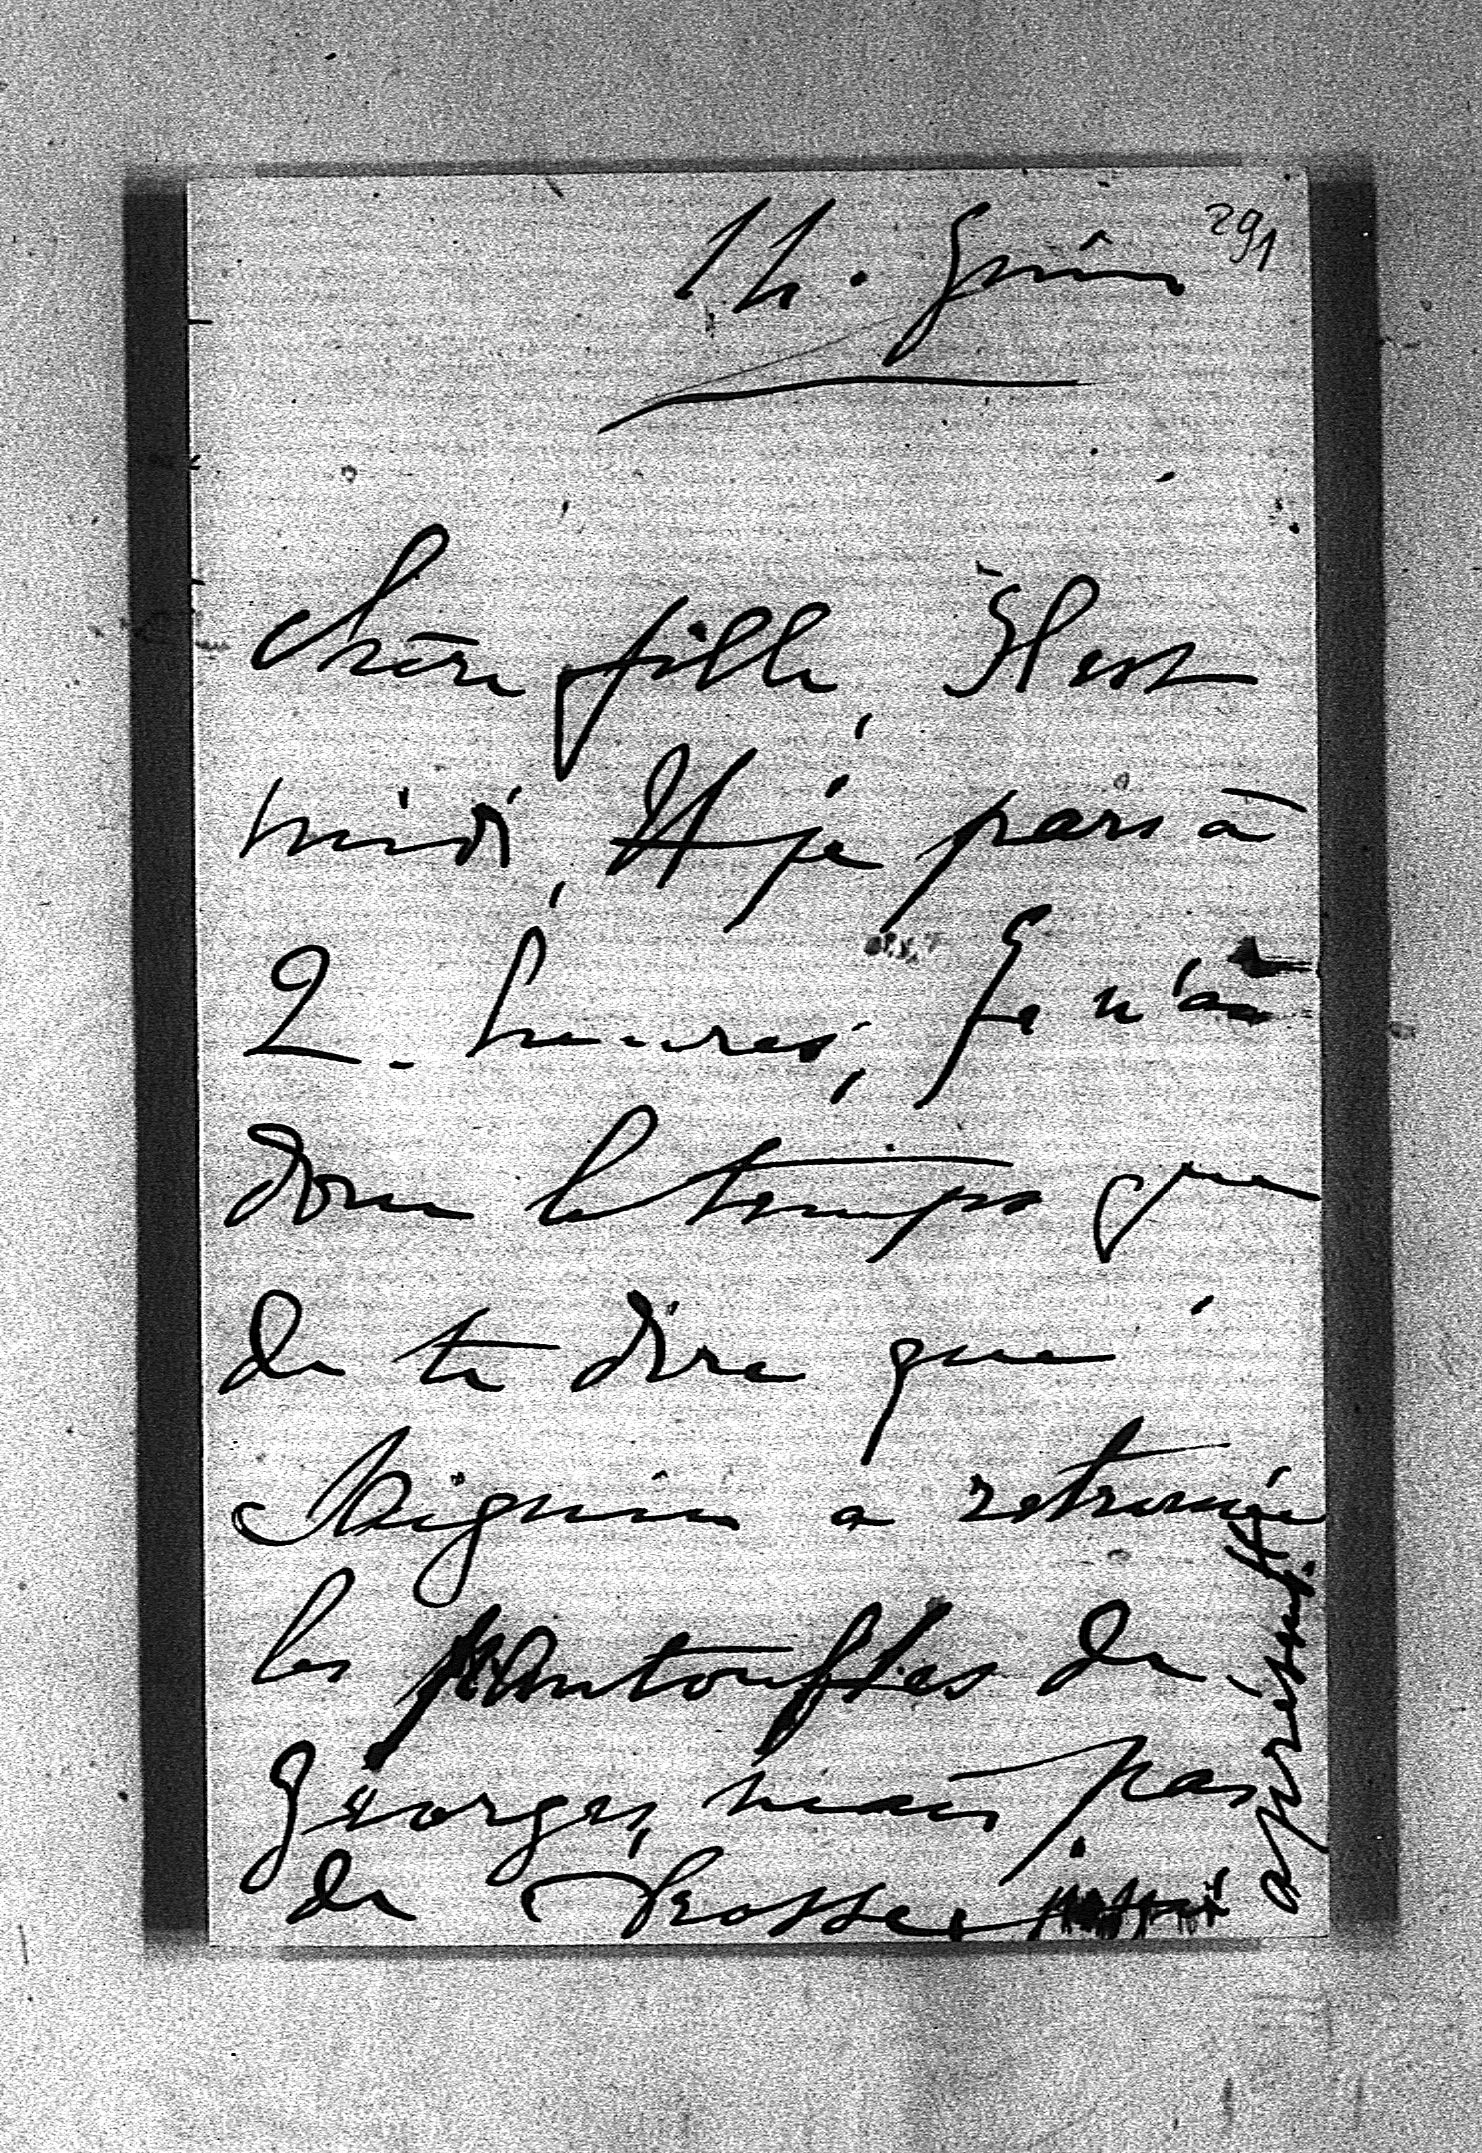 291
14. Juin
chère fille, Il est
midi, Et je pars à
2 - heures, Je n'ai
donc le temps que
de te dire que
Mignin a retrouvée
les pantoufles de
Georges, mais pas
de brosse
apresent